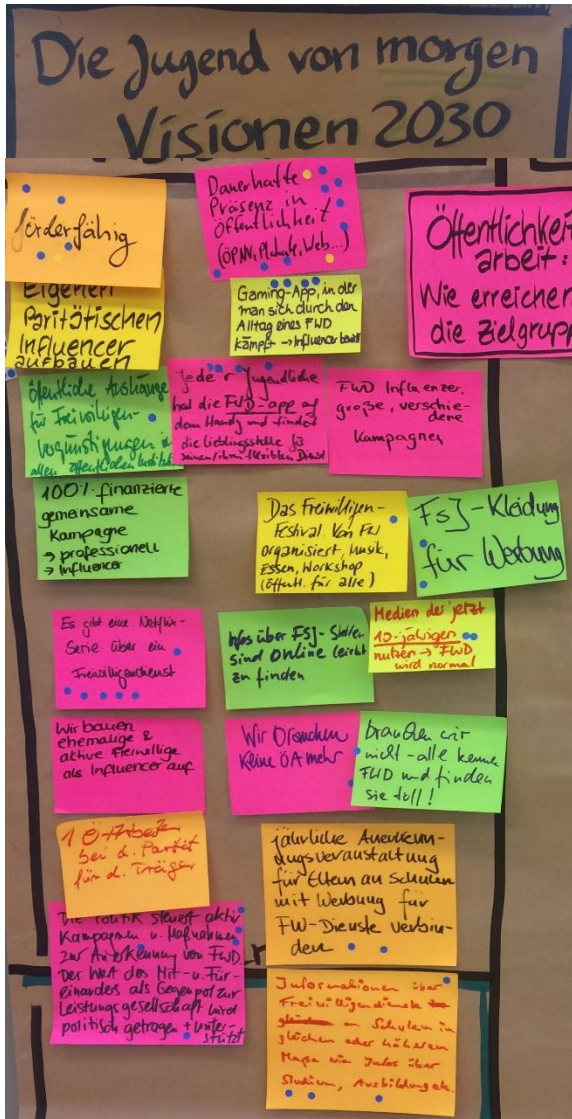 Die Jugend von morgen
Visionen 2030
förderfähig
Dauerhafte
Präsenz in
Öffentlichkeit
(ÖPNV, Plakate, Web...)
Öffentlichkeit
arbeit:
Wie erreichen
die Zielgrupp
Eigenen
Paritätischen
Influencer
aufbauen
Gaming-App, in der
man sich durch den
Alltag eines FWD
kämpft → Influencer
öffentliche Aushänge
für Freiwilligen-
vergünstigungen in
allen öffentlichen
Jede r Jugendliche
hat die FWD-app auf
dem Handy und findet
die Lieblingsstelle für
seinen/ihren flexiblen Dienst
FWD Influenzer,
große, verschie-
dene
Kampagnen
100% finanzierte
gemeinsame
Kampagne
→ professionell
→ Influencer
Das Freiwilligen-
Festival. Von FW
Organisiert, Musik,
Essen, Workshop
(öffentl. für alle)
FSJ-Kleidung
für Werbung
Es gibt eine Netflix-
Serie über ein
Freiwilligendienst
Infos über FSJ-Stellen
sind Online leicht
zu finden
Medien der jetzt
10-jährigen
nutzen → FWD
wird normal
Wir bauen
ehemalige &
aktive Freiwillige
als Influencer auf
Wir brauchen
keine ÖA mehr
brauchen wir
nicht - alle kennen
FWD und finden
sie toll!
1
bei d. Parität
für d. Träger
jährliche Anerken-
nungsveranstaltung
für Eltern an Schulen
mit Werbung für
FW-Dienste verbin-
den
Die Politik steuert aktiv
Kampagnen u. Maßnahmen
zur Anerkennung von FWD.
Der Wert des Mit- u. Für-
einanders als Gegenpol zur
Leistungsgesellschaft wird
politisch getragen + unter-
stützt
Informationen über
Freiwilligendienste
an Schulen in
gleichen oder höherem
Maße wie Infos über
Studium, Ausbildung etc.